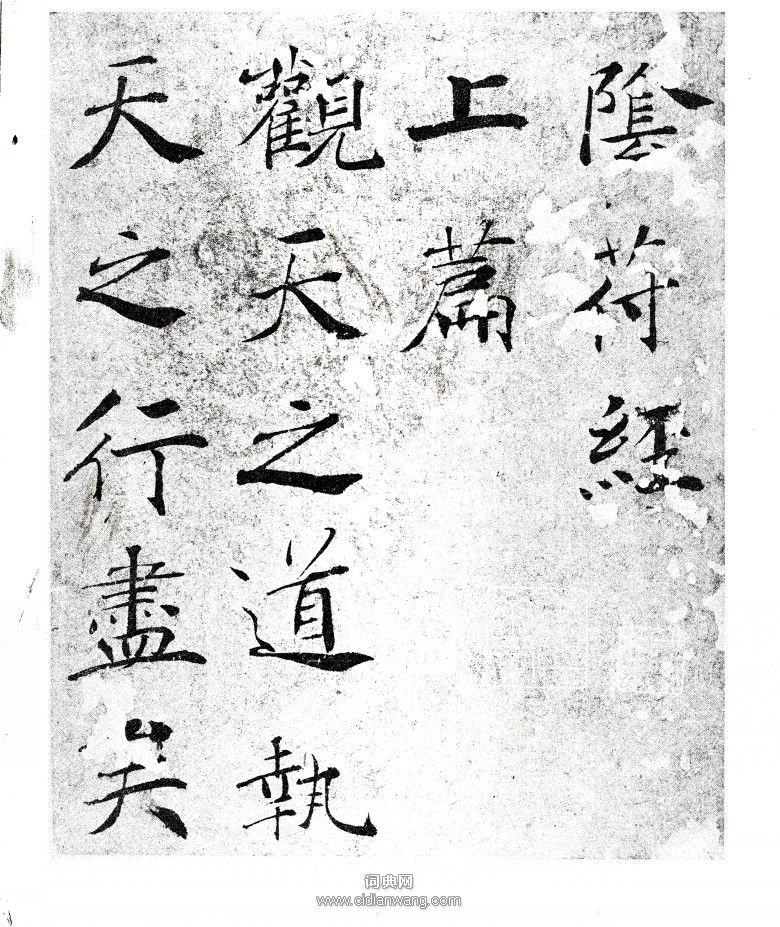 陰符經
上篇
觀天之道執
天之行盡矣
词典网
www.cidianwang.com